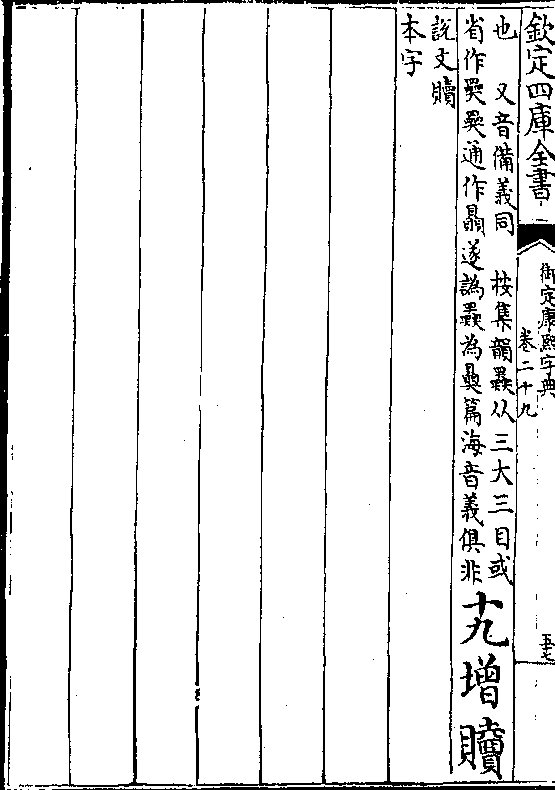 欽定四庫全書
御定康熙字典
卷二十九
也 又音備義同 按集韻𡚤从三大三目或
省作奰奰通作贔遂譌𡚤為奰篇海音義俱非
十九增
說文贖
本字